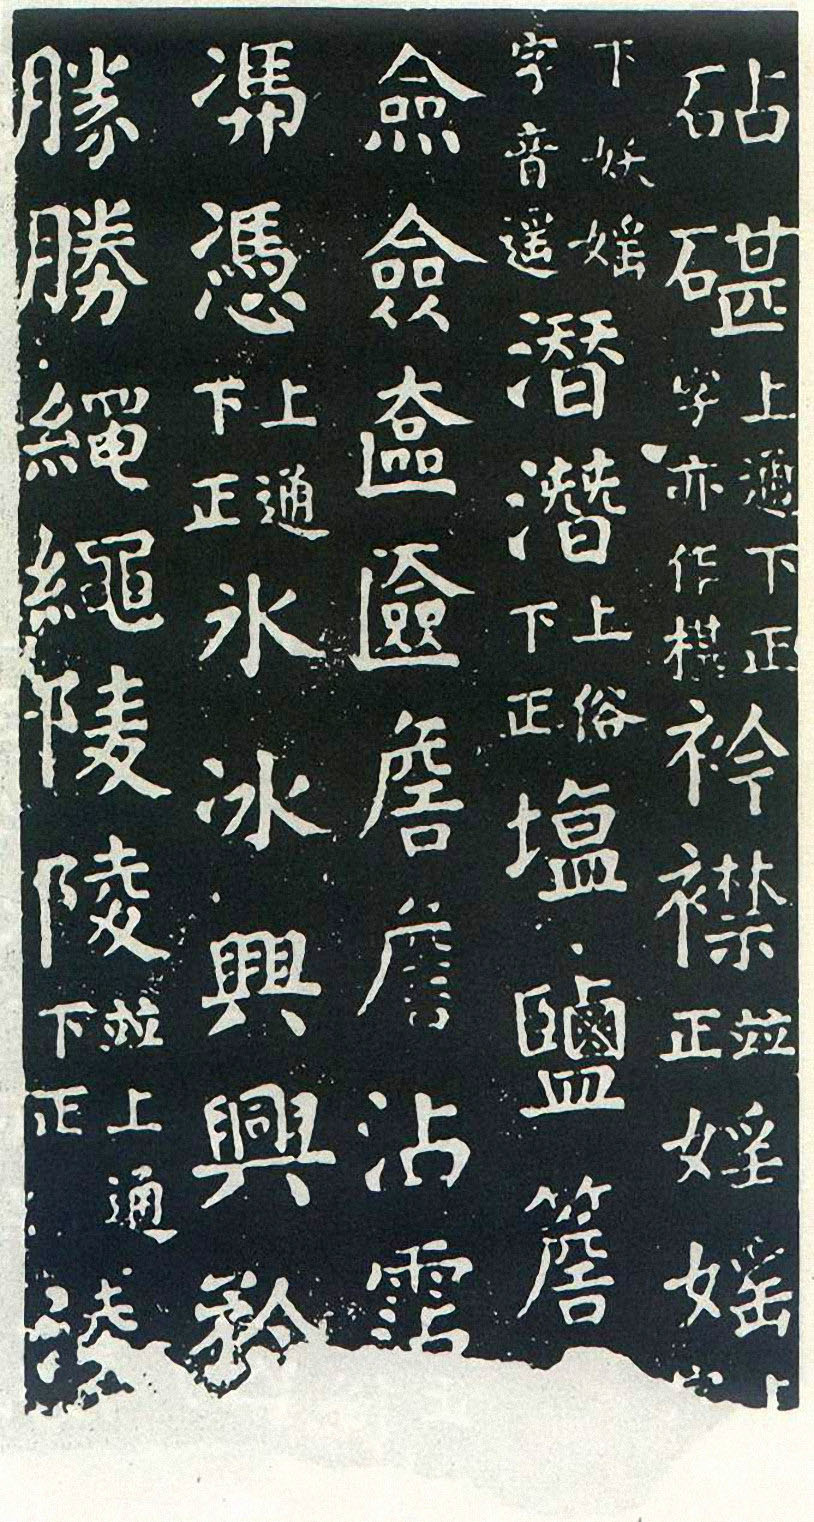 砧碪上通下正字亦作椹衿襟並正婬媱
下妖媱字音遥潜潛上俗下正塩鹽簷
㑒僉匲匳詹沾霑
凴憑上通下正氷冰興興矜
勝勝縄繩陵陵並上通下正